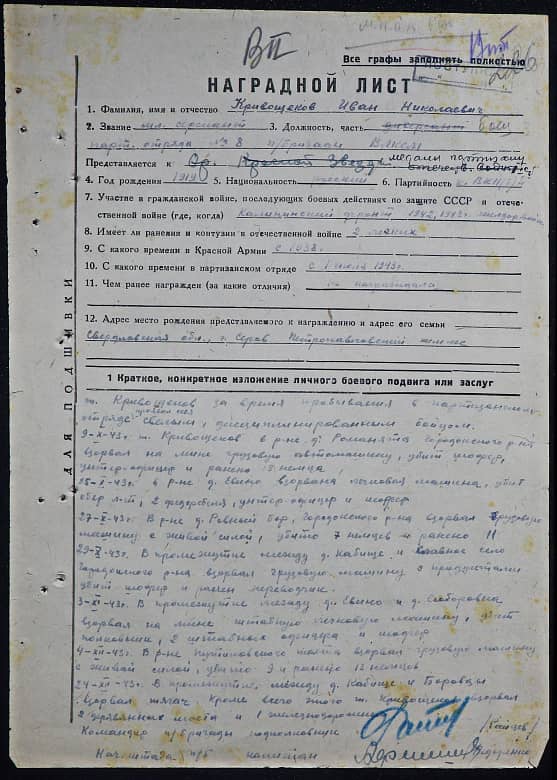 ВП
Все графы заполнять полностью
НАГРАДНОЙ ЛИСТ
1. Фамилия, имя и отчество Кривощеков Иван Николаевич
2. Звание мл. сержант 3. Должность, часть боец
парт. отряда № 8 п/бригады
Представляется к Ор. Красной Звезды медали партизану
4. Год рождения 1919 5. Национальность русский 6. Партийность
7. Участие в гражданской войне, последующих боевых действиях по защите СССР и отече-
ственной войне (где, когда) Калининский фронт 1942, 1943г.
8. Имеет ли ранения и контузии в отечественной войне 2 легких
9. С какого времени в Красной Армии с 1938г.
10. С какого времени в партизанском отряде с 1943г.
11. Чем ранее награжден (за какие отличия)
12. Адрес место рождения представляемого к награждению и адрес его семьи
Свердловская обл., г. Серов
ДЛЯ ПОДШИВКИ
1 Краткое, конкретное изложение личного боевого подвига или заслуг
т. Кривощеков за время пребывания в партизанском
отряде смелым, дисциплинированным бойцом.
9-X-43г. т. Кривощеков в р-не д. Романята Городокского р-на
взорвал на мине грузовую автомашину, убит шофер,
унтер-офицер и ранено 18 немца.
в р-не д. Евино взорвана легковая машина, убит
обер л-т, 2 фельдфебеля, унтер-офицер и шофер
27-X-43г. В р-не д. Ровный бор, Городокского р-на взорвал грузовую
машину с живой силой, убито 7 немцев и ранено 11
29-X-43г. В промежутке между д. Кабище и село
Городокского р-на взорвал грузовую машину с продуктами
убит шофер и ранен переводчик.
3-XI-43г. В промежутке между д. Евино и д.
взорвал на мине штабную легковую машину, убит
полковник, 2 штабных офицера и шофер
4-XI-43г. В р-не взорвал грузовую машину
с живой силой, убито 9 и ранено 12 немцев
24-XI-43г. В промежутке между д. Кабище и Боровцы
взорвал тягач. Кроме всего этого т. Кривощеков взорвал
2 деревянных моста и 1 железнодорожный
Командир п/бригады подполковник
Нач. штаба п/б капитан